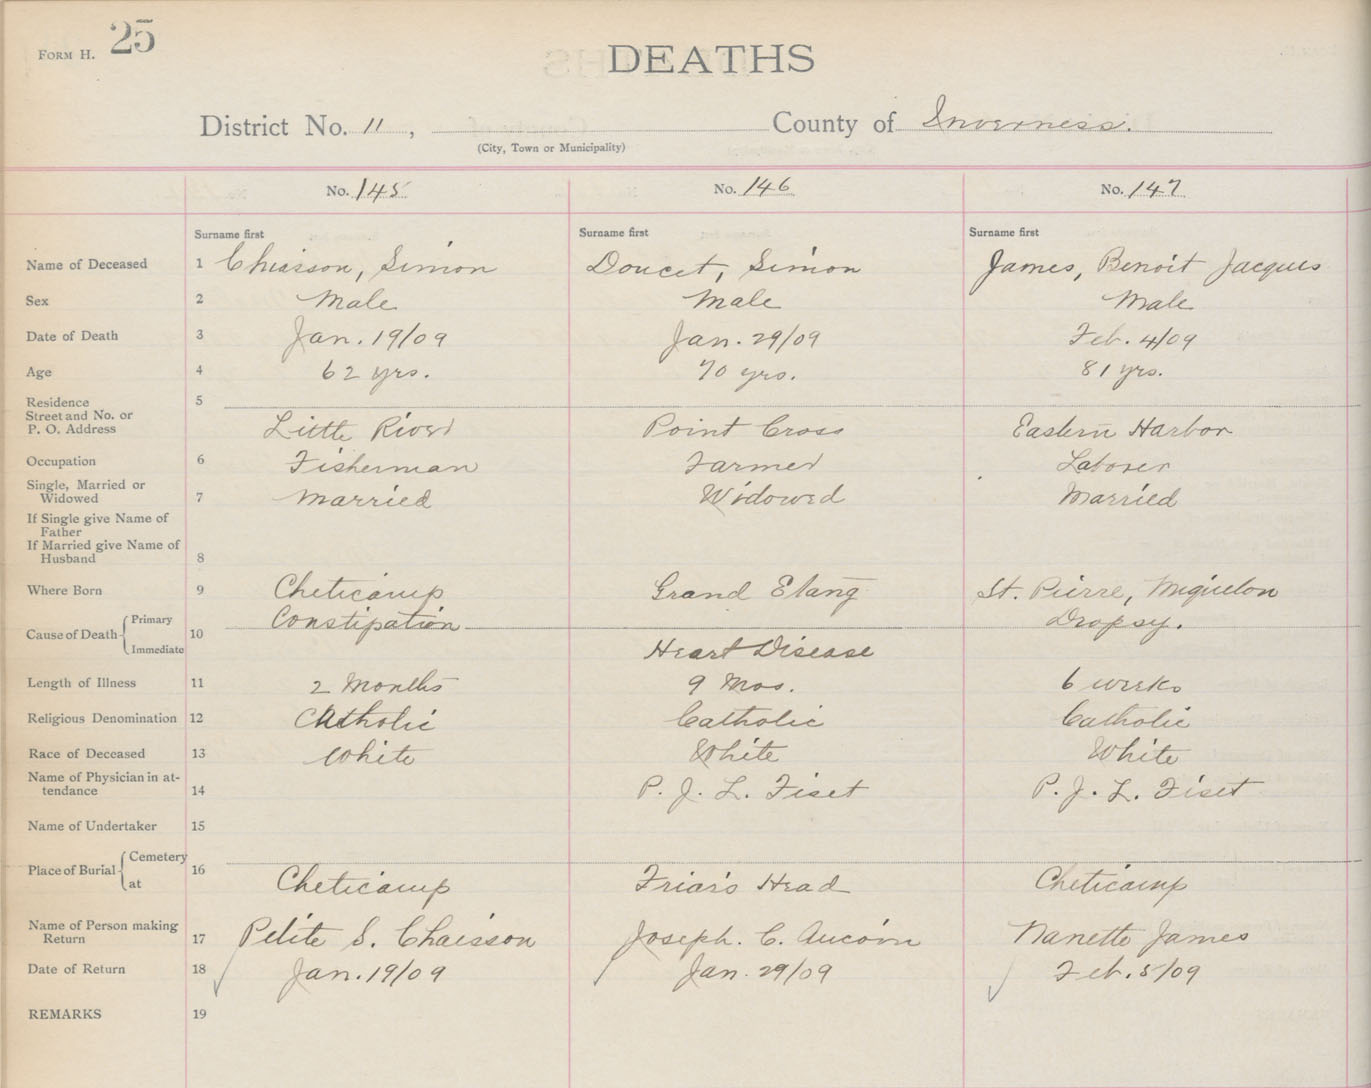 FORM H. 25
DEATHS
District No. 11, County of Inverness.
(City, Town or Municipality)
No. 145 No. 146 No. 147
Surname first Surname first Surname first
Name of Deceased 1 Chiasson, Simon Doucet, Simon James, Benoit Jacques
Sex 2 Male Male Male
Date of Death 3 Jan. 19/09 Jan. 29/09 Feb. 4/09
Age 4 62 yrs. 70 yrs. 81 yrs.
Residence 5
Street and No. or
P. O. Address Little River Point Cross Eastern Harbor
Occupation 6 Fisherman Farmer Laborer
Single, Married or
Widowed 7 Married Widowed Married
If Single give Name of
Father
If Married give Name of
Husband 8
Where Born 9 Cheticamp Grand Etang St. Pierre, Miquelon
Cause of Death Primary 10 Constipation Dropsy.
Immediate Heart Disease
Length of Illness 11 2 Months 9 Mos. 6 weeks
Religious Denomination 12 Catholic Catholic Catholic
Race of Deceased 13 White White White
Name of Physician in at-
tendance 14 P. J. L. Fiset P. J. L. Fiset
Name of Undertaker 15
Place of Burial Cemetery 16
at Cheticamp Friar's Head Cheticamp
Name of Person making
Return 17 Pelite S. Chaisson Joseph. C. Aucoin Nanette James
Date of Return 18 Jan. 19/09 Jan. 29/09 Feb. 5/09
REMARKS 19